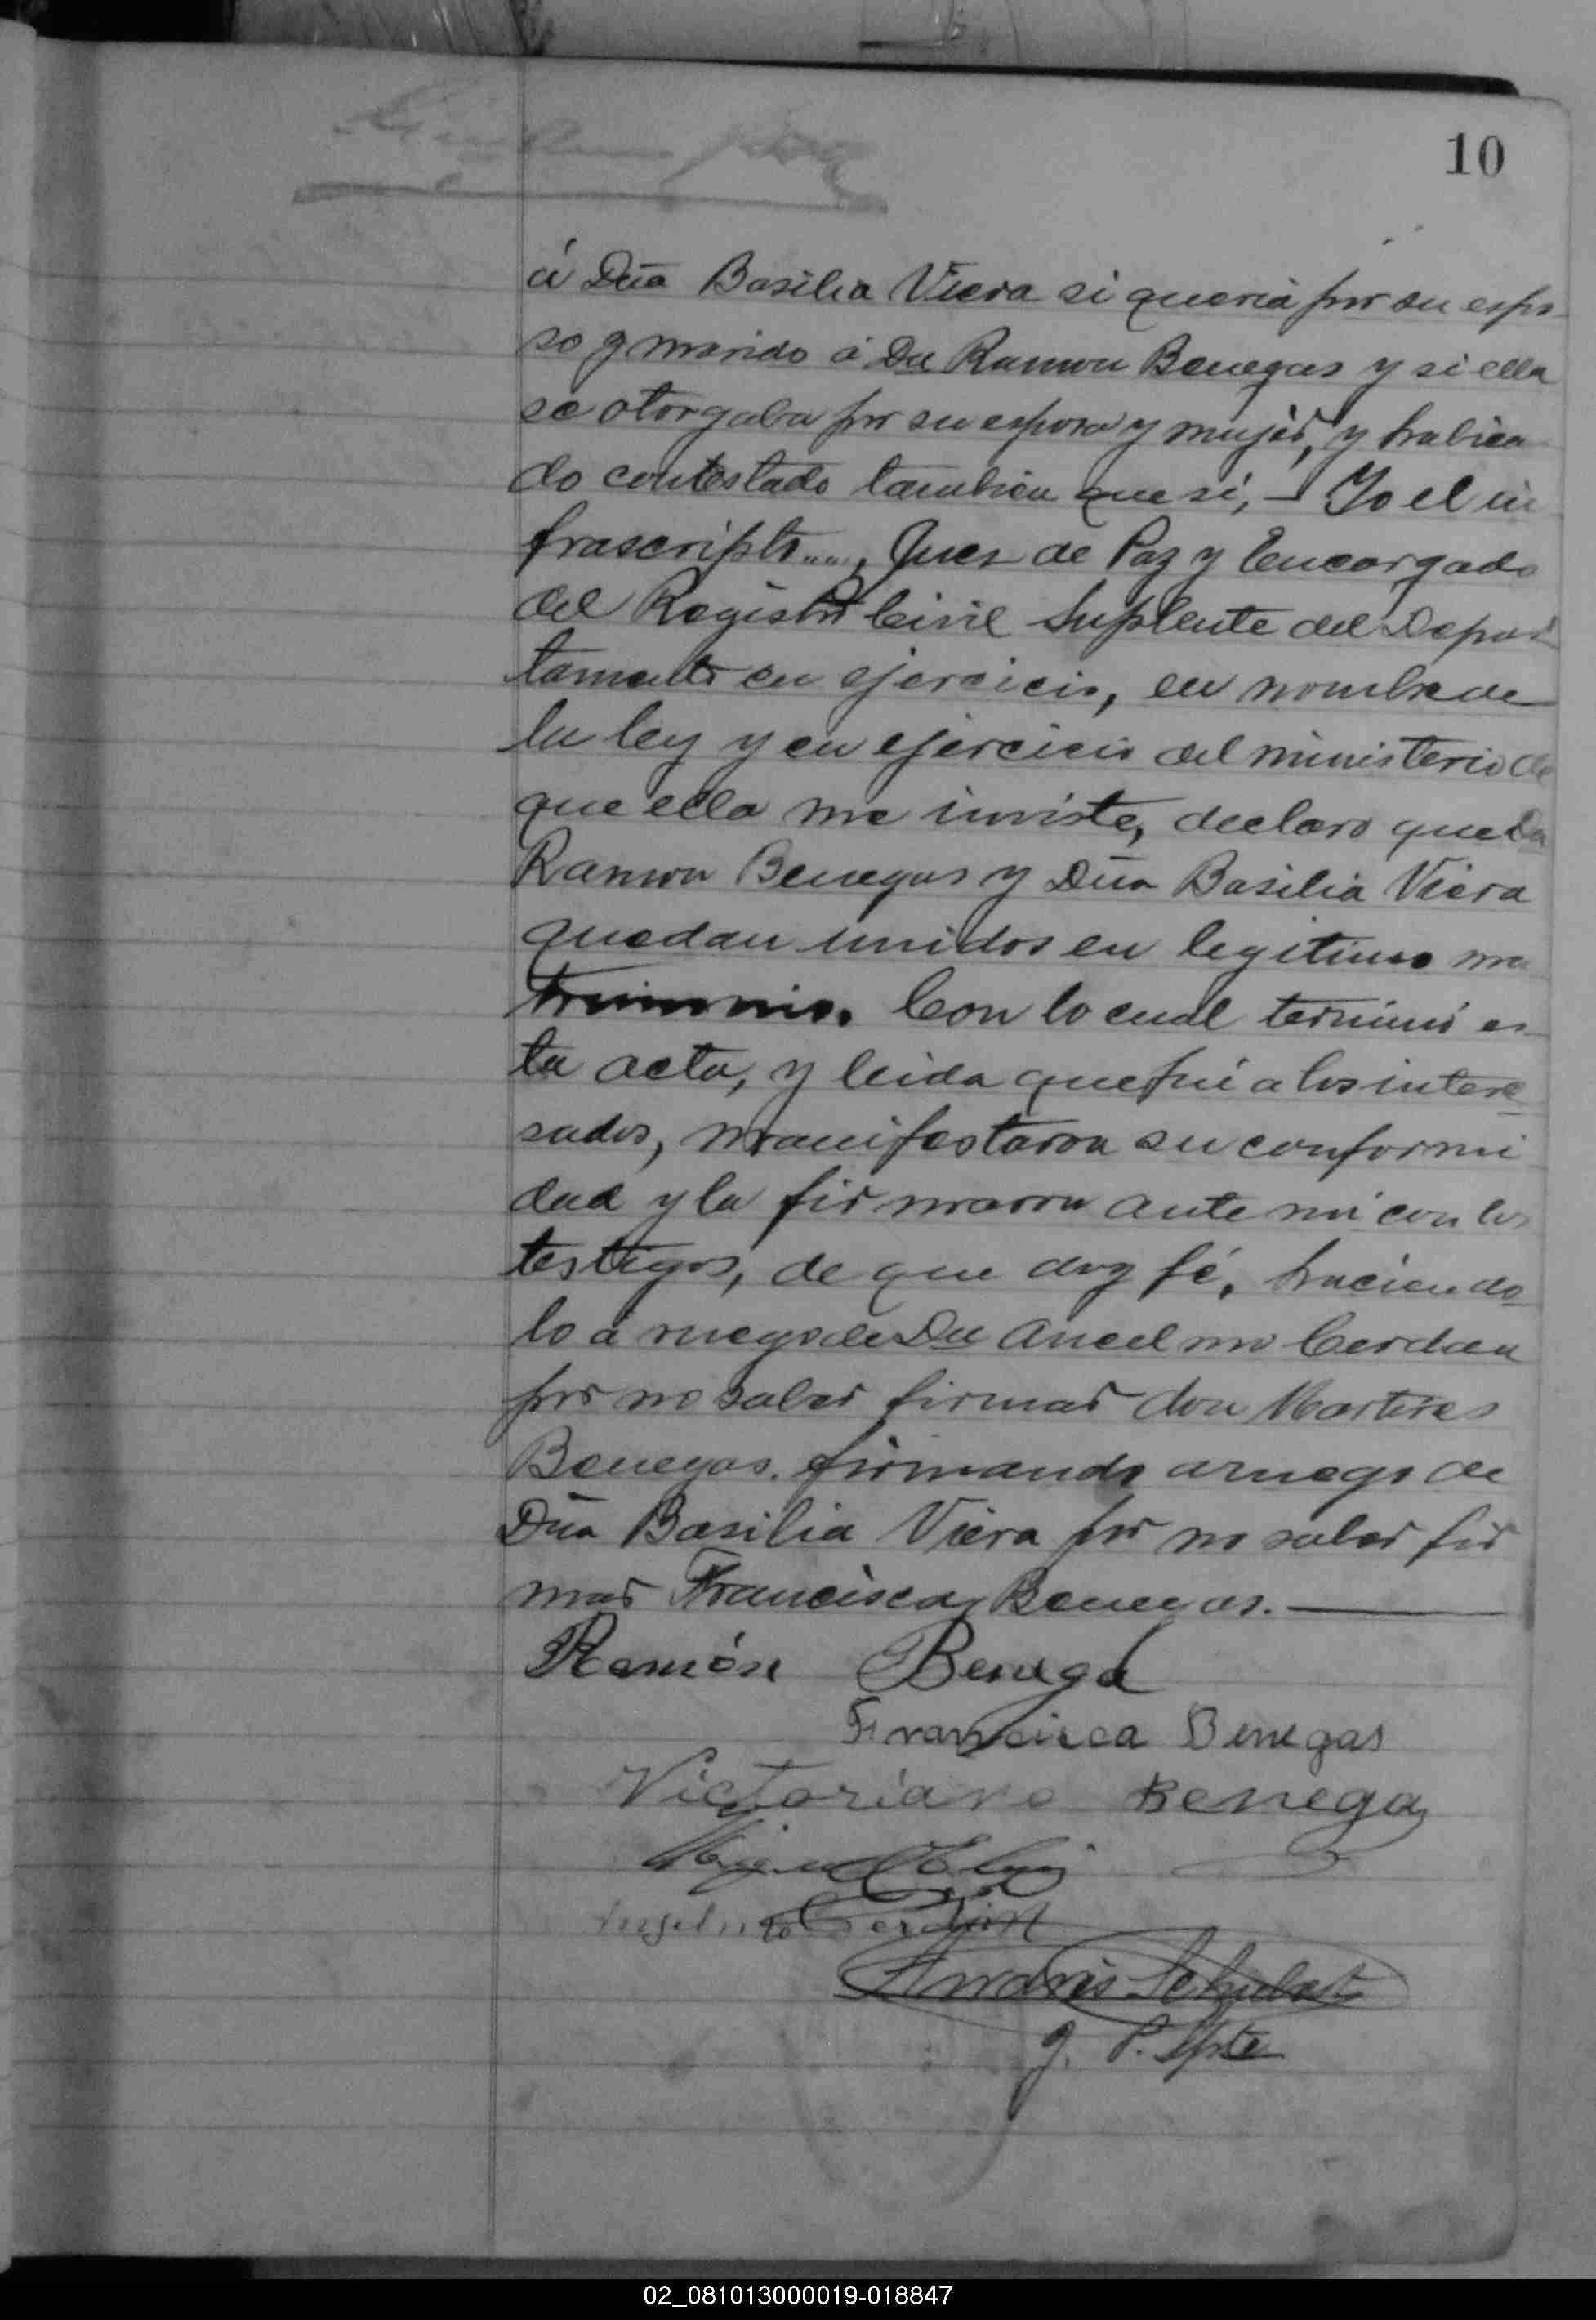 10
á Dña Basilia Viera si queria por su espo
so y marido á Dn Ramon Benegas y si ella
se otorgaba por su esposa y mujer, y habien
do contestado tambien que sí, — Yo el in
frascripto...., Juez de Paz y Encargado
del Registro Civil Suplente del Depar
tamento en ejercicio, en nombre de
la ley y en ejercicio del ministerio de
que ella me inviste, declaro que Dn
Ramon Benegas y Dña Basilia Viera
quedan unidos en legitimo ma
trimonio. Con lo cual terminó es
ta acta, y leida que fué a los intere
sados, manifestaron su conformi
dad y la firmaron ante mí con los
testigos, de que doy fé, haciendo
lo á ruego de Dn Ancelmo Cerdan
por no saber firmar don Martires
Benegas. firmando a ruego de
Dña Basilia Viera por no saber fir
mar Francisca Benegas. —
Ramón Benega
Francisca Benegas
Victoriano Benega
Anselmo Cerdan
Andrés Schubert
J. P. Spte
02_081013000019-018847